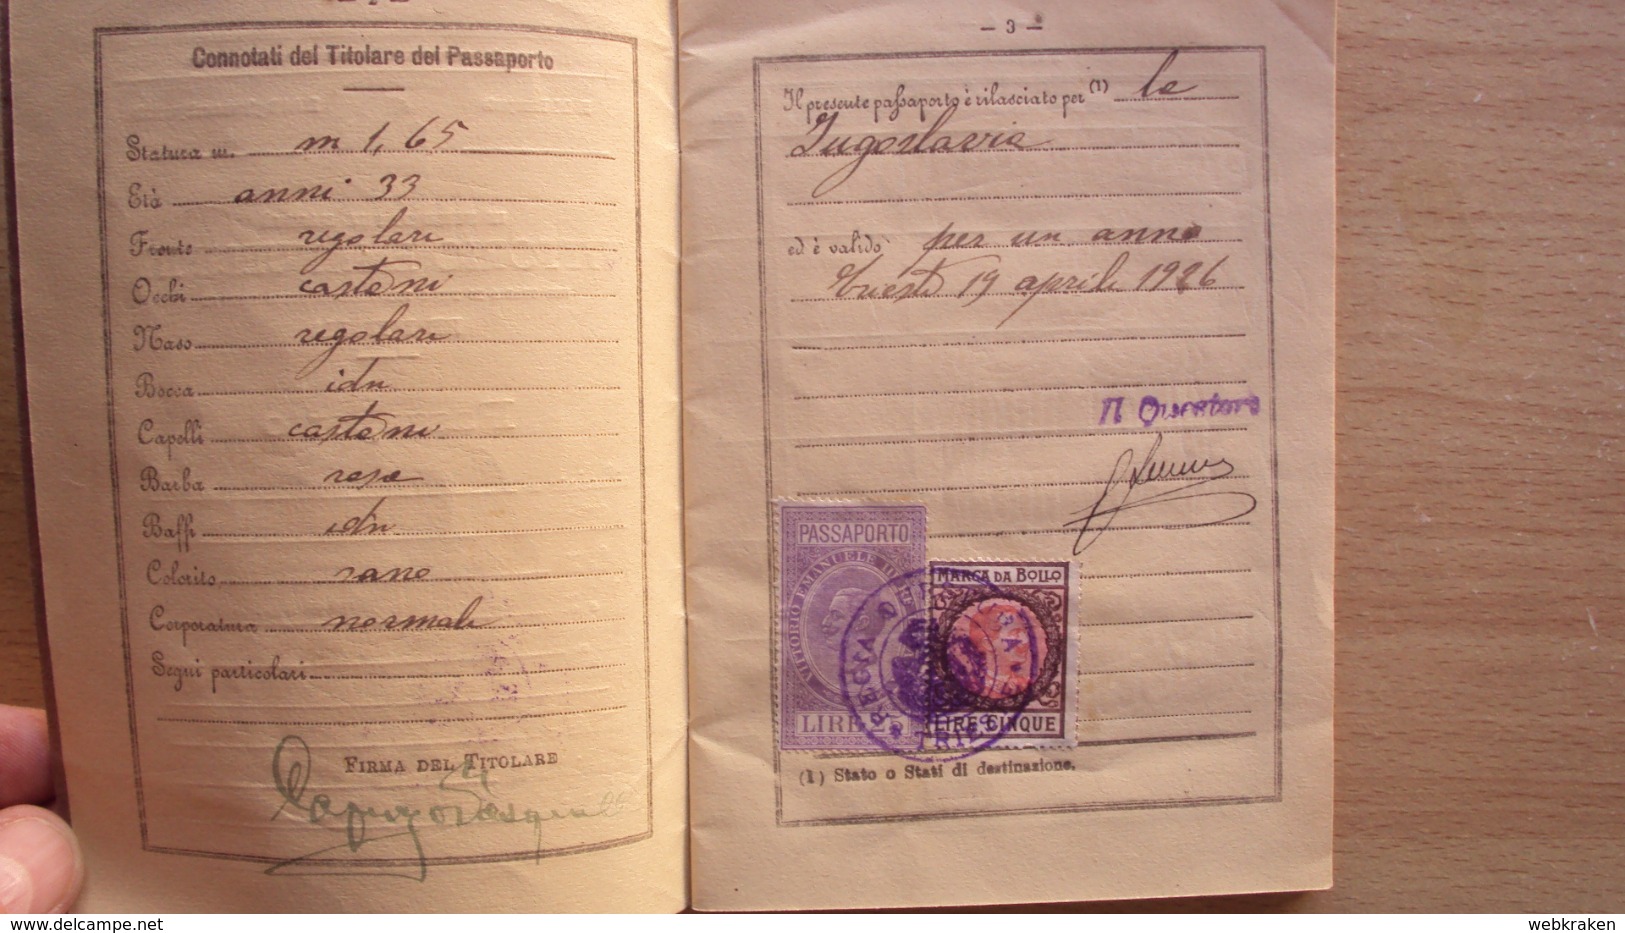 Connotati del Titolare del Passaporto
Statura m. m 1,65
Età anni 33
Fronte regolare
Occhi castani
Naso regolare
Bocca idm
Capelli castani
Barba rasa
Baffi idm
Colorito sano
Corporatura normale
Segni particolari
FIRMA DEL TITOLARE
— 3 —
Il presente passaporto è rilasciato per (1) la
Jugoslavia
ed è valido per un anno
Trieste 19 aprile 1926
Il Questore
PASSAPORTO
VITTORIO EMANUELE III
LIRE
MARCA DA BOLLO
LIRE CINQUE
REGIA
(1) Stato o Stati di destinazione.
webkraken